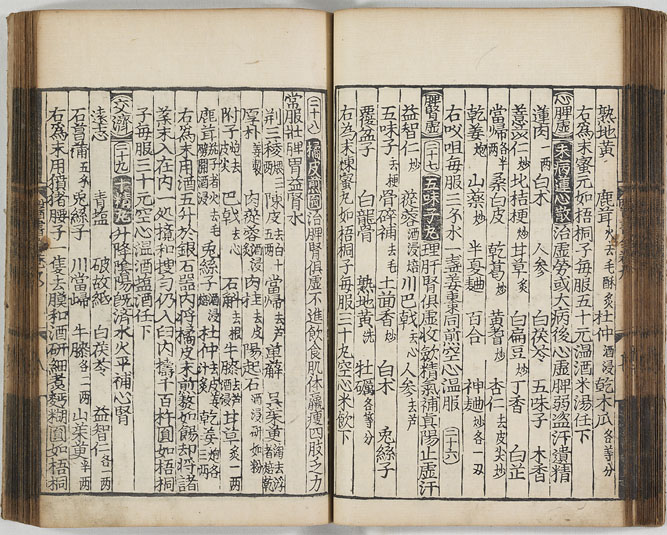 熟地黄 鹿茸火去毛酥炙 杜仲酒浸 乾木瓜各等分
右為末蜜元如梧桐子毎服五十元温酒米湯任下
心脾虚 未病蓮心散 治虚勞或大病後心虚脾弱盗汗遺精
蓮肉一兩 白木 人参 白茯苓 五味子 木香
薏苡仁炒 北桔梗炒 甘草炙 白扁豆炒 丁香 白芷
當帰各半兩 桑白皮 乾葛炒 黄耆炒 杏仁去皮尖炒
乾姜炮 山藥炒 半夏麯 百合 神麯炒各一刃
右㕮咀毎服三𫝆水一盞姜棗同前空心温服 三十六
脾腎虚 三十七 五味子丸 理肝腎俱虚收歛精氣補真陽止虚汗
益智仁炒 蓯蓉酒浸焙 川巴戟去心 人参去芦
五味子去梗 骨碎補去毛 土茴香炒 白木 兎絲子
覆盆子 白龍骨 熟地黄洗 牡蠣各等分
右為末煉蜜丸如梧桐子毎服三十丸空心米飲下
三十八 橘皮煎圓 治脾腎俱虚不進飲食肌体羸瘦四肢乏力
常服壮脾胃益腎水
荆三稜 陳皮 當帰去芦 萆薢 呉茱萸
厚朴姜製 肉蓯蓉酒浸 肉桂去皮 陽起石酒浸研如粉
附子炮去皮尖 巴戟去心 石斛去根 牛膝酒浸 甘草炙一兩
鹿茸 兎絲子酒浸 杜仲 乾姜
右為末用酒五升於銀石器内将橘皮末煎熬如餳却将諸
藥末入在内一処攪和搜勻仍入臼内擣千百杵圓如梧桐
子毎服三十元空心温酒塩酒任下
交濟 三十九 升降陰陽既濟水火平補心腎
遠志 青塩 破故紙 白茯苓 益智仁各一兩
石菖蒲 兎絲子 川當帰 牛膝各二兩 山茱萸
右為末用獖猪腰子一隻去膜和酒研細煮麺糊圓如梧桐